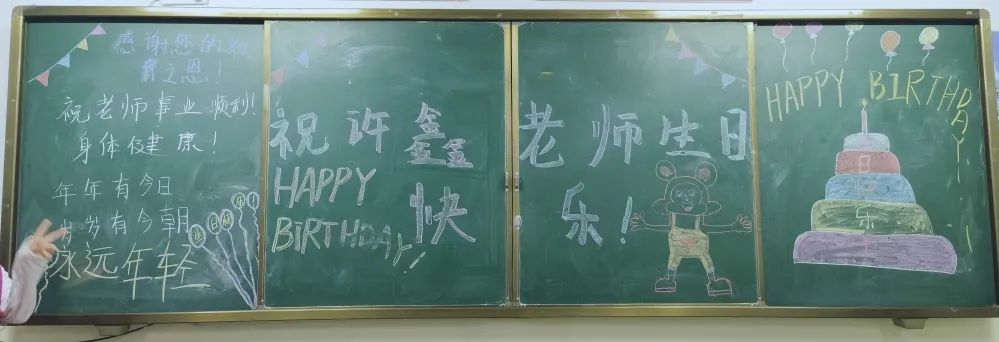 感谢您的教
育之恩！
祝老师事业顺利!
身体健康！
年年有今日
岁岁有今朝
永远年轻
生日快乐!
祝许鑫老师生日
快乐！
HAPPY
BIRTHDAY!
HAPPY BIRTHDAY!
日
快
乐